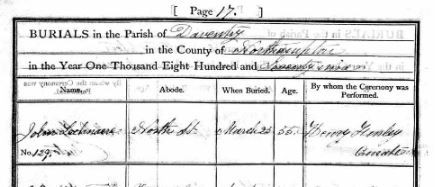 [ Page 17. ]
BURIALS in the Parish of Daventry
in the County of Northampton
in the Year One Thousand Eight Hundred and Seventy
Name. Abode. When Buried. Age. By whom the Ceremony was Performed.
John North St. March 23 55 Henry
No. 129. Curate